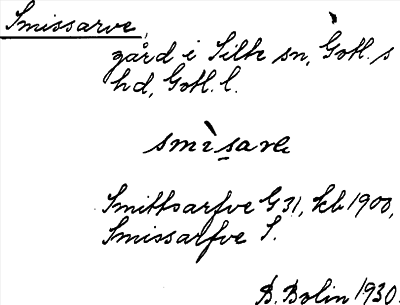 Smissarve,
gård i Silte sn, Gotl. s
hd, Gotl. l.
smìsarve
Smittsarfve G 31, kb 1900,
Smissarfve S.
B. Bolin 1930.